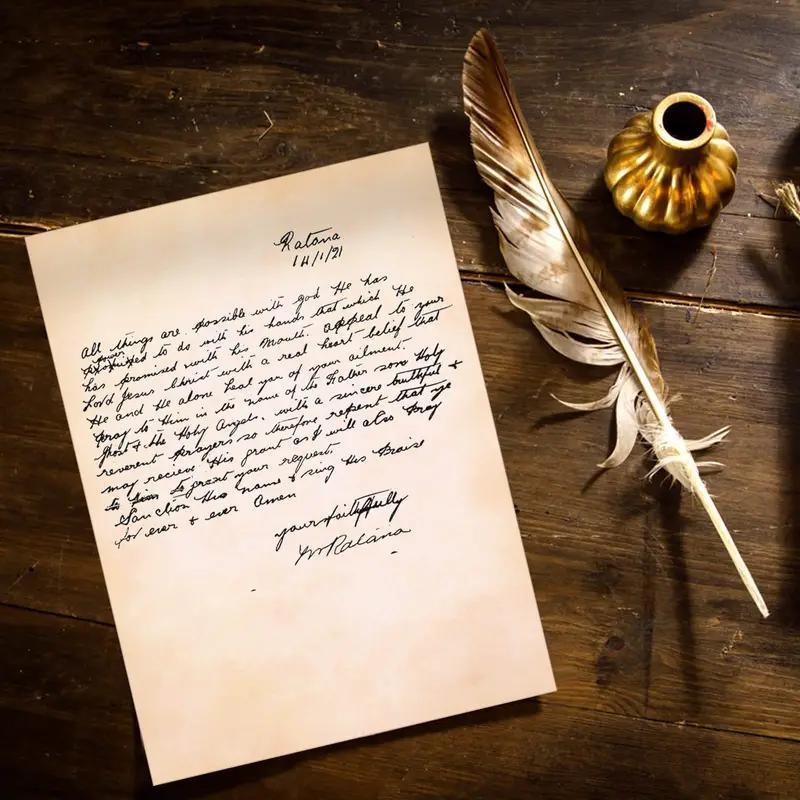 Ratana
14/1/21
All things are possible with god He has
power to do with his hands that which He
has promised with his Mouth. appeal to your
Lord Jesus Christ with a real heart belief that
He and He alone heal you of your ailment.
pray to Him in the name of the Father son Holy
Ghost & the Holy Angels. with a sincere truthful &
reverent prayers so therefore repent that ye
may recieve His grant as I will also pray
to Him to grant your request.
Sanction His name & sing His Praise
for ever & ever Amen
yours faithfully
Ratana